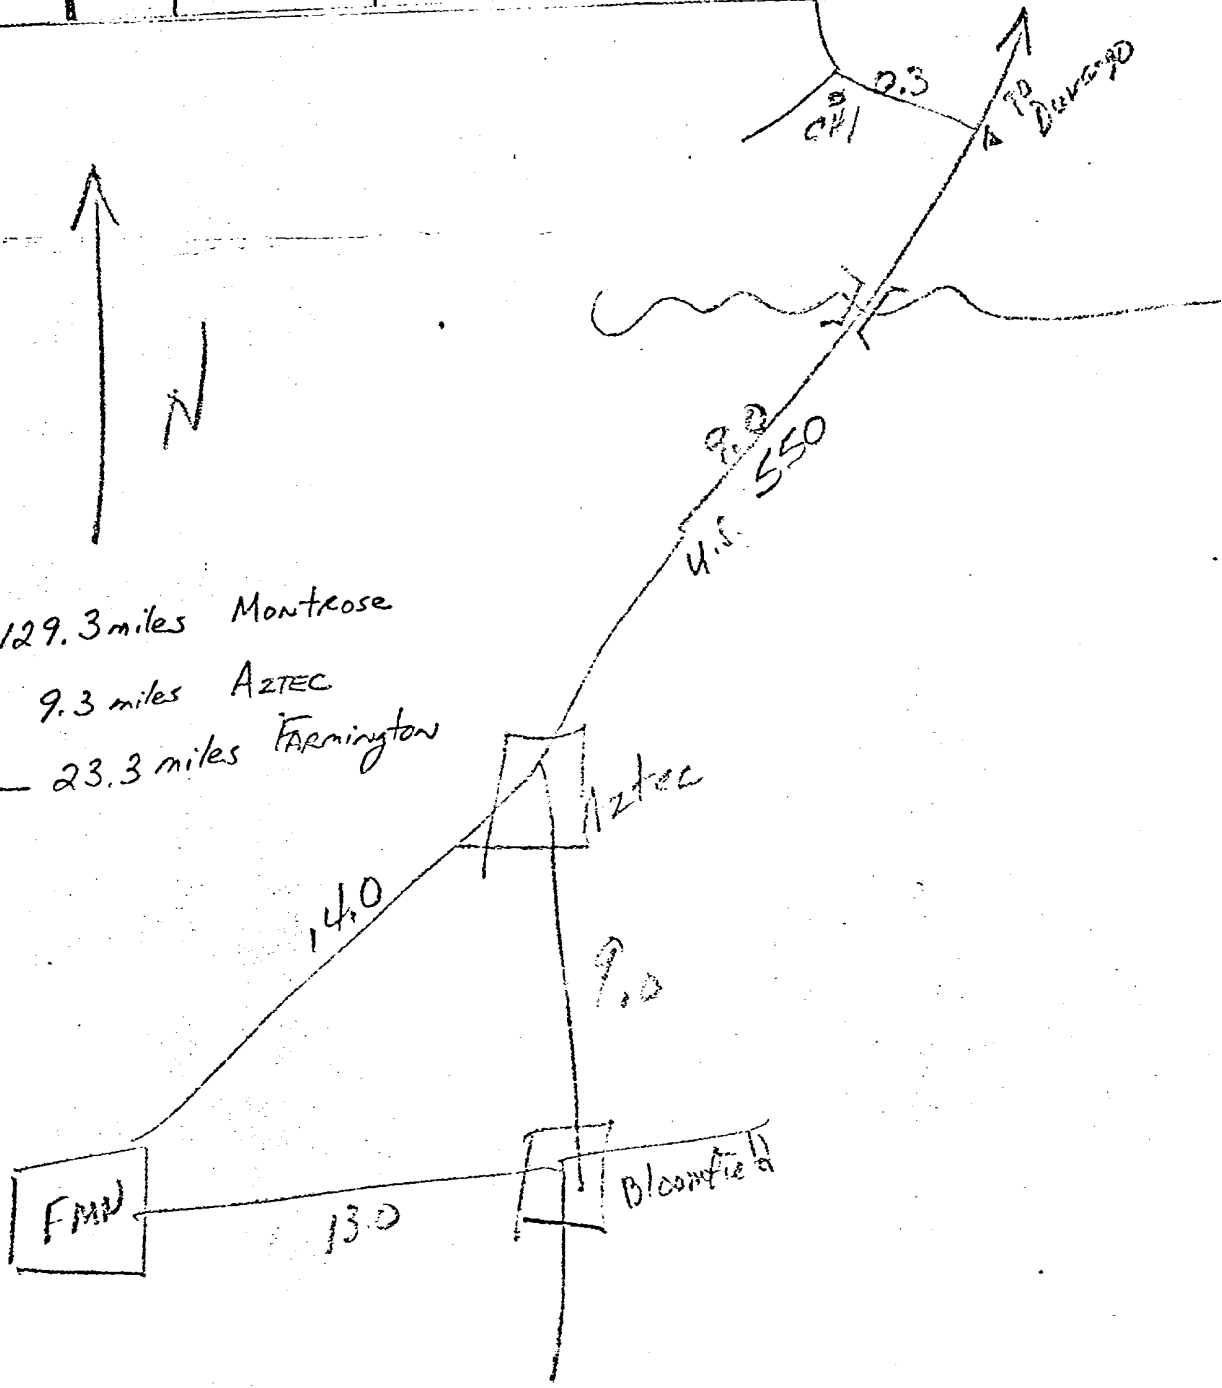 0.3
CH1
To
Durango
N
9.0
U.S. 550
129.3 miles Montrose
9.3 miles AZTEC
23.3 miles FARmington
Aztec
14.0
9.0
Bloomfield
FMN
13.0